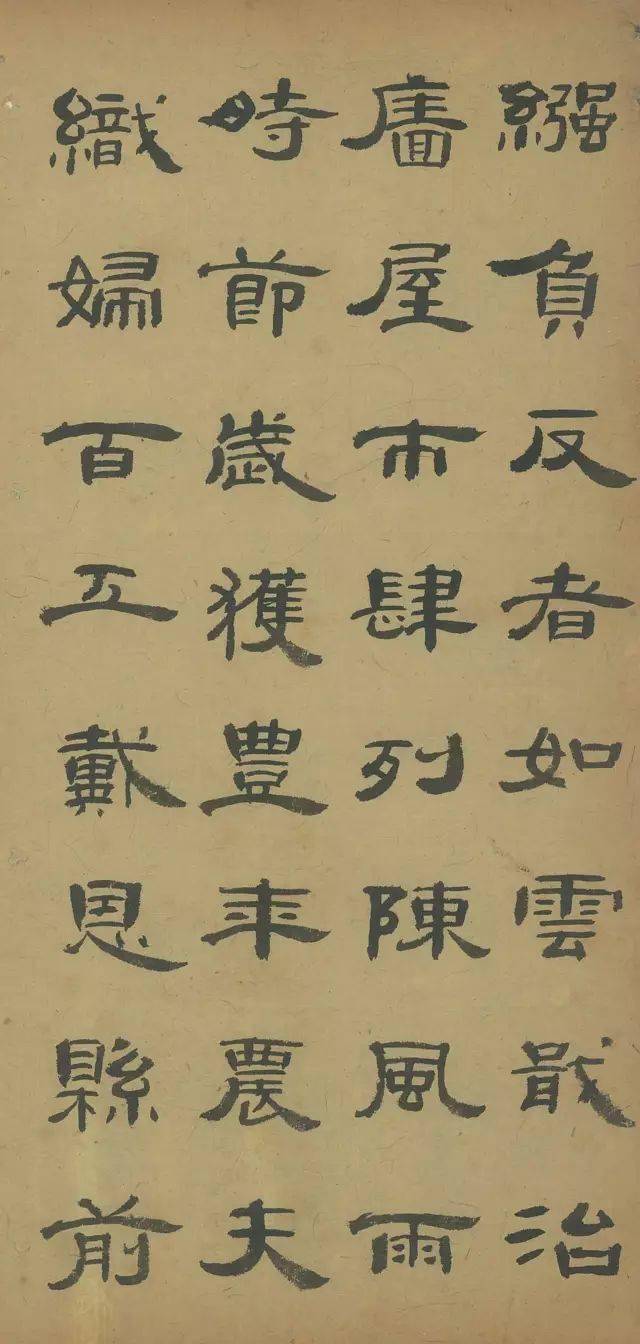 繈負反者如雲戢治
廧屋市肆列陳風雨
時節歲獲豐年農夫
織婦百工戴恩縣前